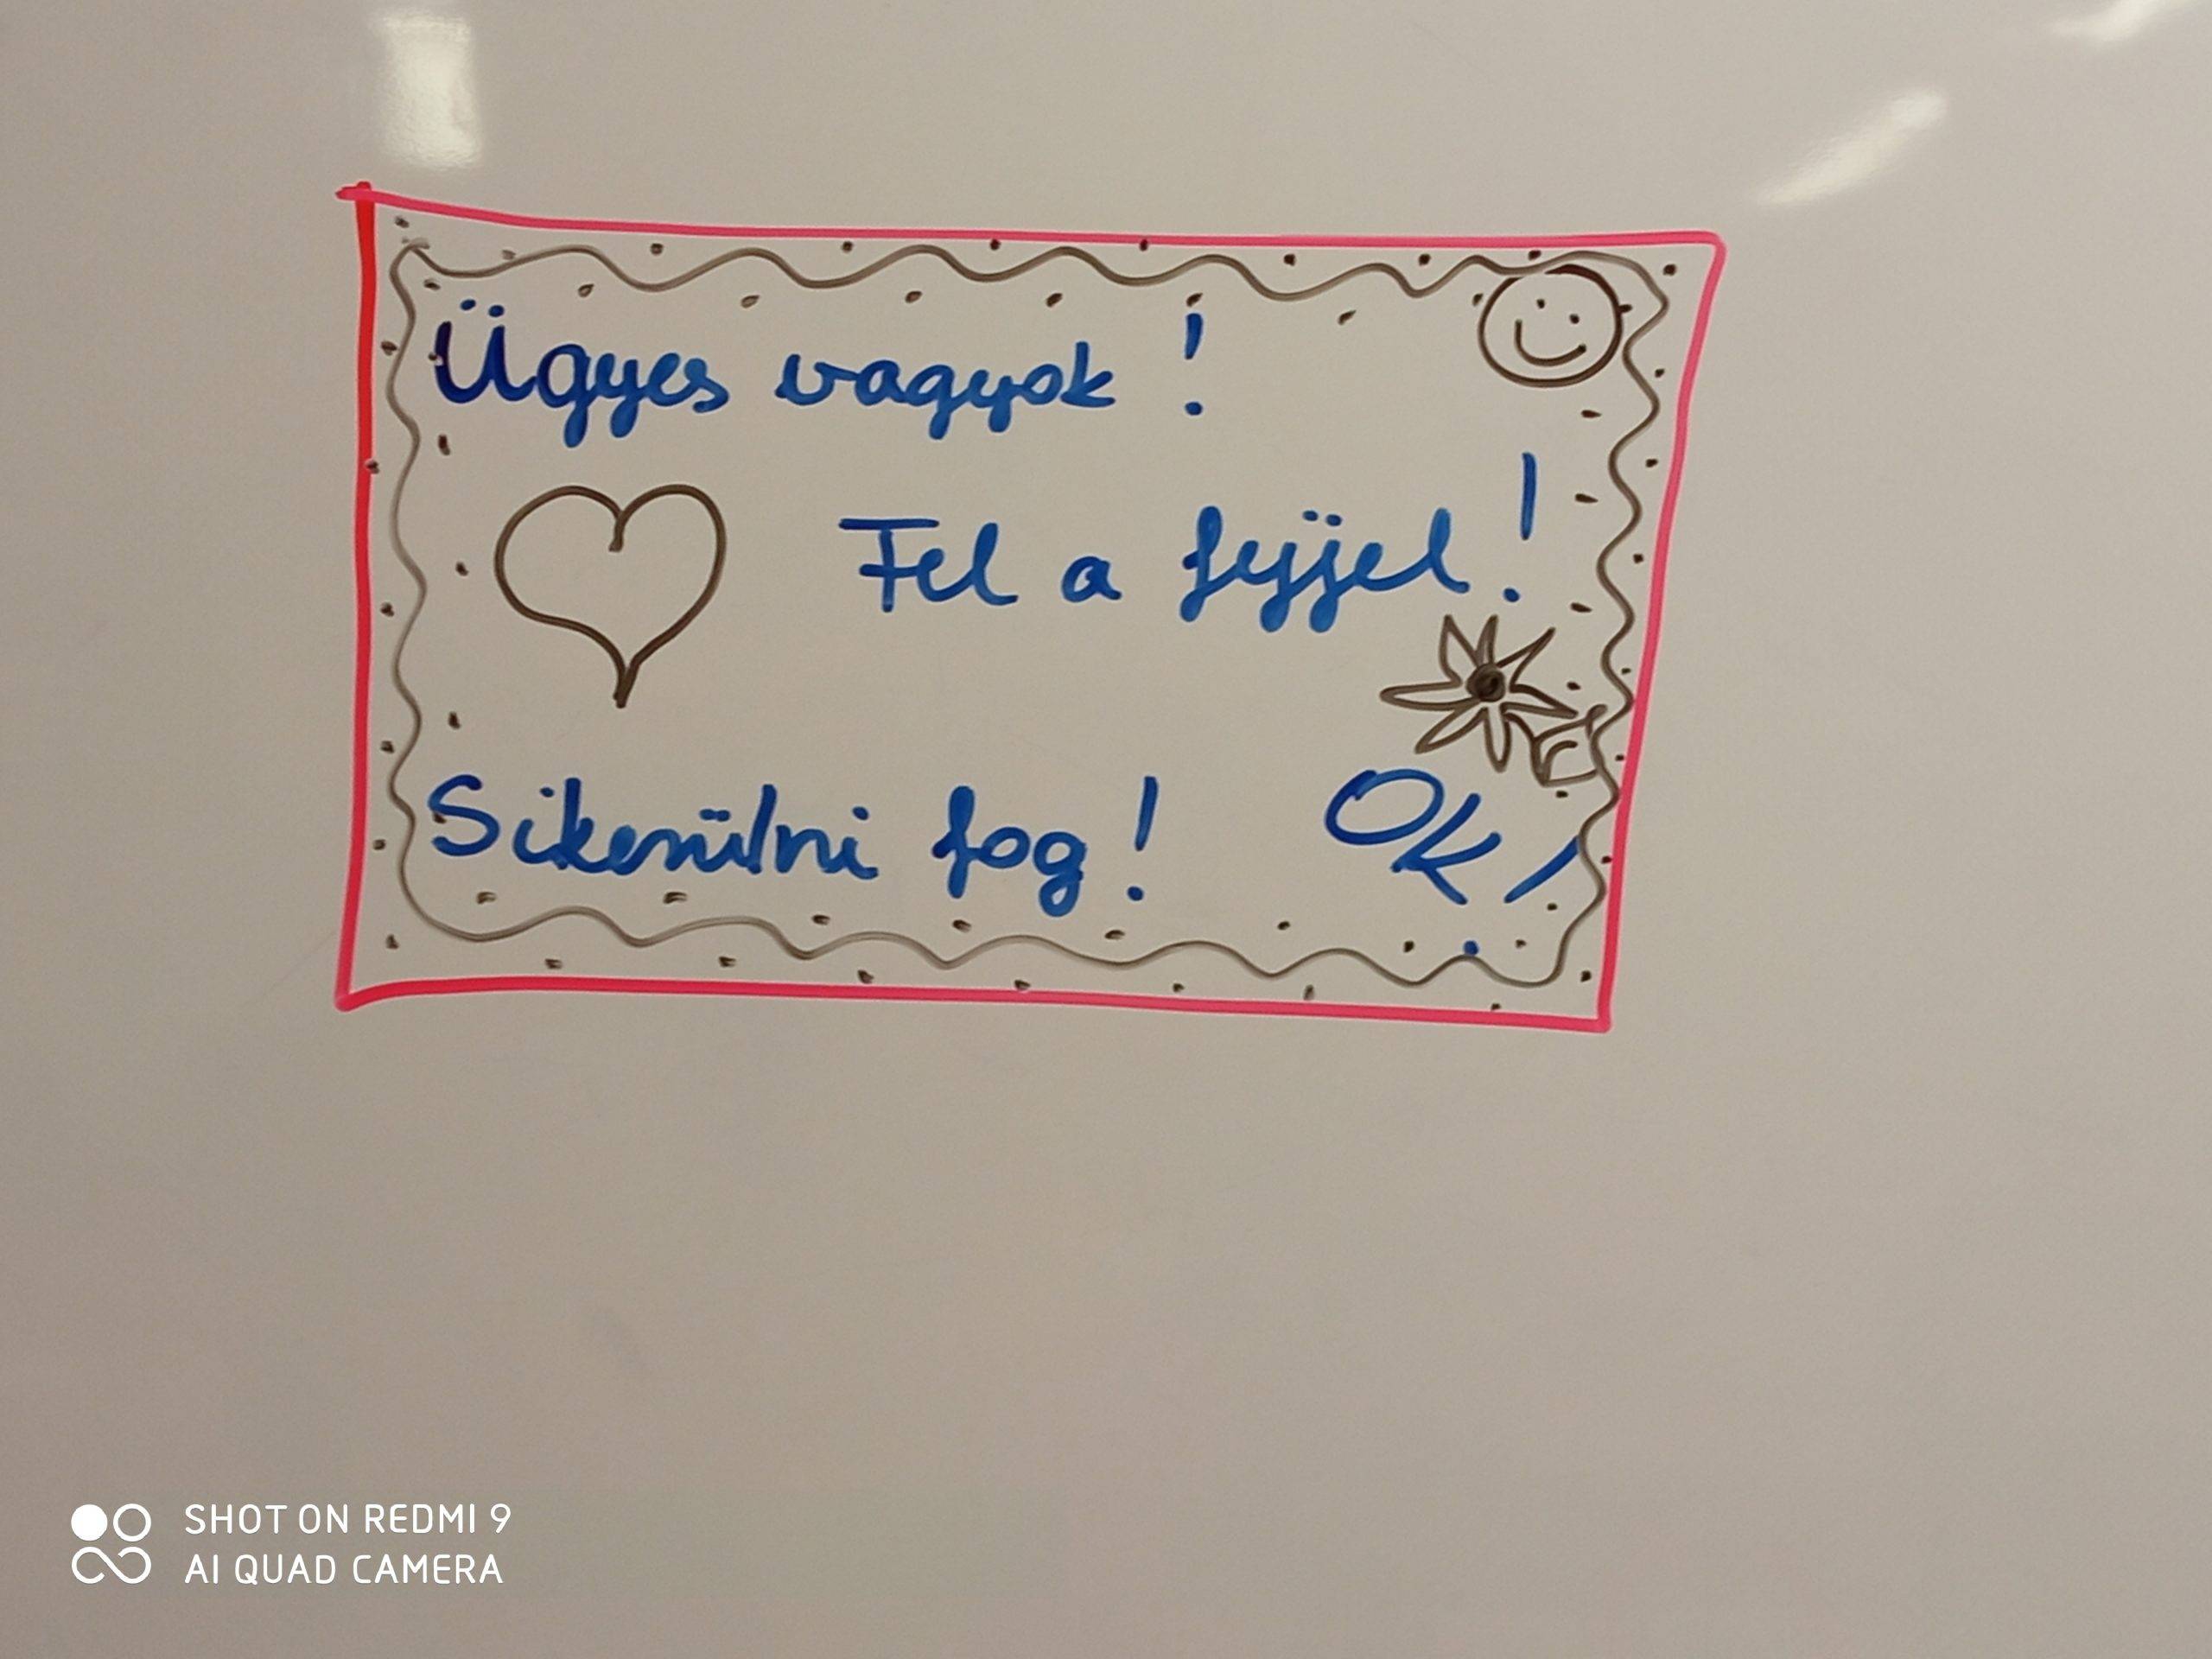 Ügyes vagyok!
Fel a fejjel!
Sikerülni fog! OK!
SHOT ON REDMI 9
AI QUAD CAMERA